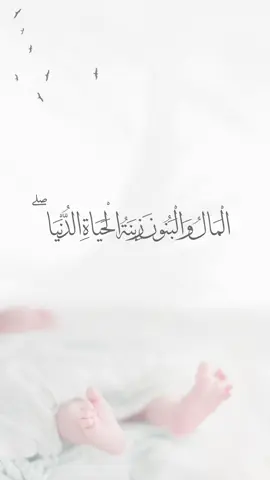 الْمَالُ وَالْبَنُونَ زِينَةُ الْحَيَاةِ الدُّنْيَا ۖ